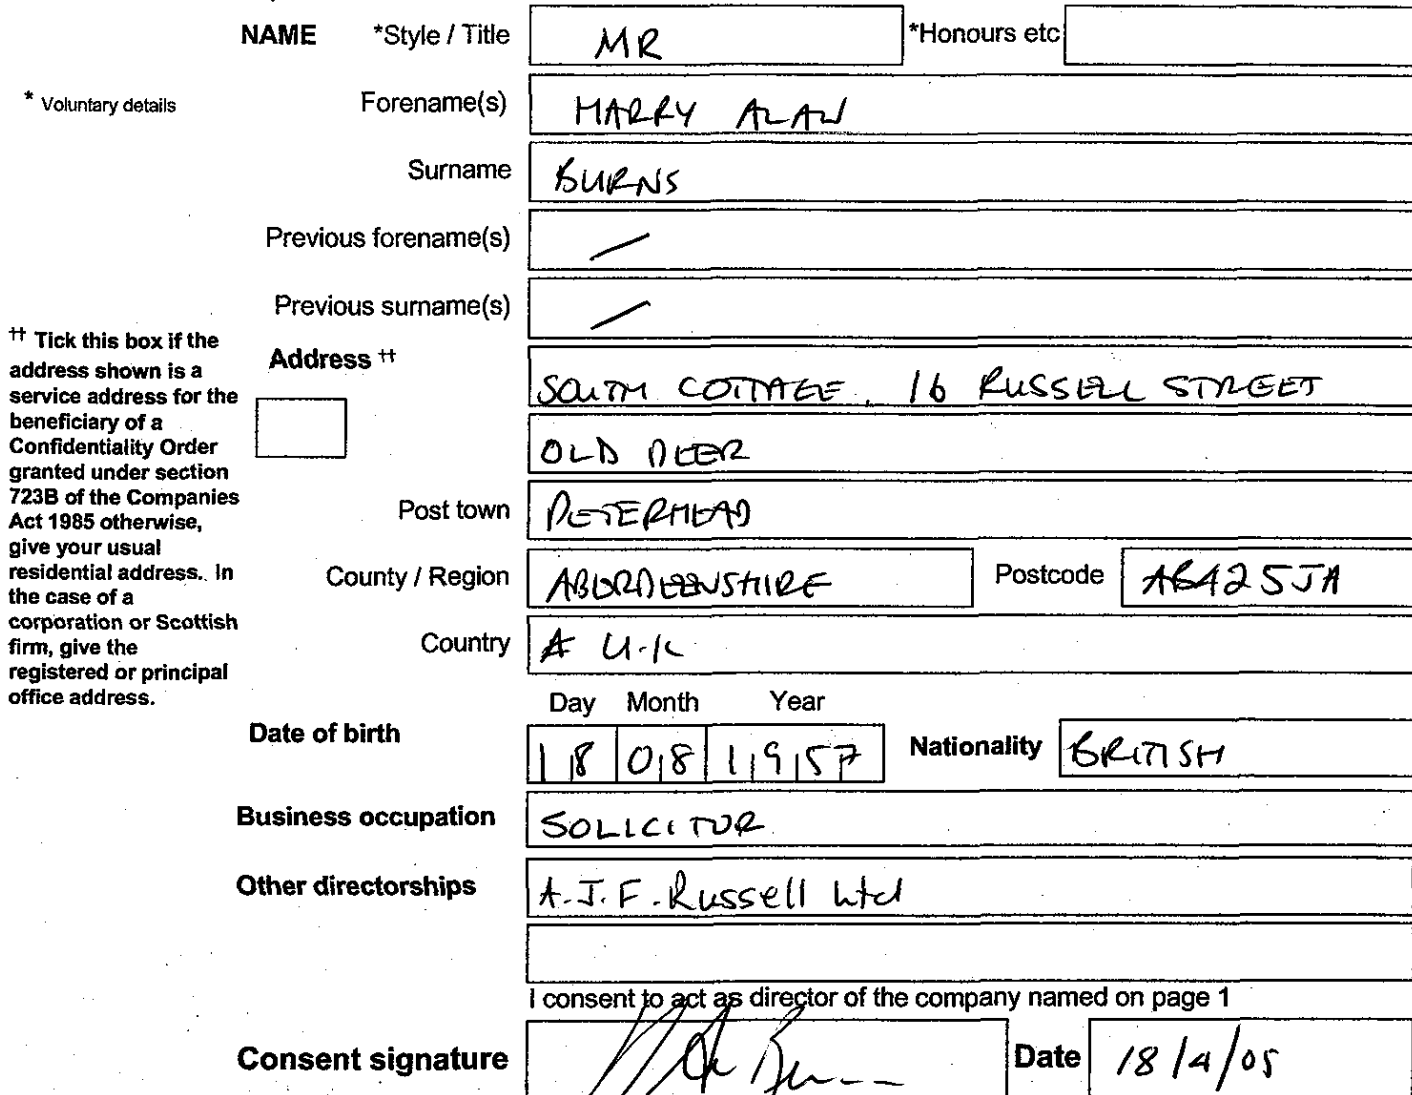 NAME *Style / Title MR *Honours etc
* Voluntary details Forename(s) HARRY ALAN
Surname BURNS
Previous forename(s) /
Previous surname(s) /
†† Tick this box if the address shown is a service address for the beneficiary of a Confidentiality Order granted under section 723B of the Companies Act 1985 otherwise, give your usual residential address.. In the case of a corporation or Scottish firm, give the registered or principal office address.
Address †† SOUTH COTTAGE, 16 RUSSELL STREET
OLD DEER
Post town PETERHEAD
County / Region ABERDEENSHIRE Postcode AB42 5JA
Country U.K
Day Month Year
Date of birth 18 08 1957 Nationality BRITISH
Business occupation SOLICITOR
Other directorships A.J.F. Russell Ltd
I consent to act as director of the company named on page 1
Consent signature Date 18/4/05